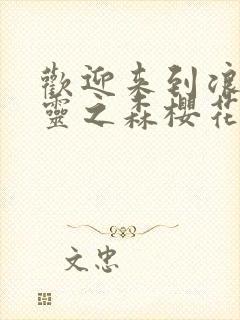 歡迎来到浪
靈之森櫻花
文忠